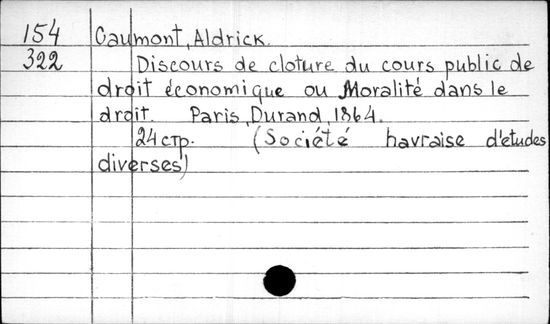 154 Caumont, Aldrick.
322 Discours de cloture du cours public de
droit économique ou Moralité dans le
droit. Paris, Durand, 1864.
24 стр. (Société havraise d'etudes
diverses)